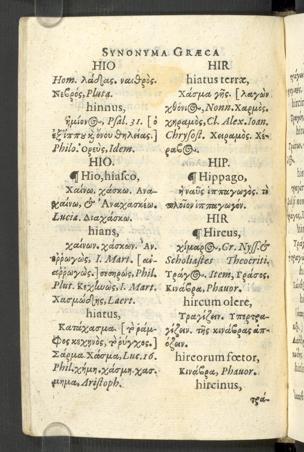 SYNONYMA GRÆCA
HIO
Hom. λάσιος. νωθρὸς.
Νεβρὸς, Plut.
hinnus,
ἡμίονος, Psal. 31. [ὁ
ἐξ ἵππου κ̀ ὄνου θηλείας.]
Philo. Ὀρεὺς, Idem.
HIO.
¶ Hio, hiasco,
Χαίνω. χάσκω. Ανα-
χαίνω, & Ἀναχασκάω.
Lucia. Διαχάσκω.
hians,
χαίνων. χάσκων. Ἀν-
Plut. Κεχηνὼς, I. Mart.
Laert.
hiatus,
Κατάχασμα.
Σάρμα. Χάσμα, Luc. 16.
Phil. χήμη. χάσμη. χασ-
μημα, Aristoph.
HIR
hiatus terræ,
Χάσμα γῆς. [λαγὼν
χθόνιος, Nonn. Χαρμὸς.
χηραμὸς, Cl. Alex. Ioan.
Chrysost. Χειραμὸς. Χέ-
ραδος.
HIP.
¶ Hippago,
ἡ ναῦς ἱππαγωγὸς. τὸ
πλοῖον ἱππαγωγόν.
HIR
¶ Hircus,
χίμαρος, Gr. Nyss. &
Scholiastes Theocriti,
Τράγος. Item, Γράσος.
Κινάβρα, Phauor.
hircum olere,
Τραγίζειν. Υπερτρα-
γίζειν. τῆς κινάβρας ἀπ-
όζειν.
hircorum fœtor,
Κινάβρα, Phauor.
hircinus,
τρά-